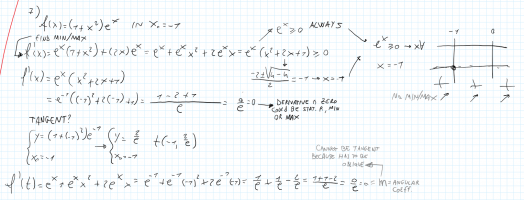 7)
f(x)=(1+x²)eˣ IN X₀=-1
FIND MIN/MAX
f'(x)=eˣ(1+x²)+(2x)eˣ = eˣ+eˣx²+2eˣx = eˣ(x²+2x+1)≥0
eˣ≥0 ALWAYS
(-2±√4-4)/2 = -1 → X=-1
eˣ≥0 → x∀
X=-1
-1 0
NO MIN/MAX
f'(x)=eˣ(x²+2x+1)
=e⁻¹((-1)²+2(-1)+1) = (1-2+1)/e = 0/e =0 → DERIVATIVE A ZERO
COULD BE STAT. P., MIN
OR MAX
TANGENT?
{y=(1+(-1)²)e⁻¹ → {y=2/e t(-1, 2/e)
X₀=-1 X₀=-1
CANNOT BE TANGENT
BECAUSE HAS TO BE
OBLIQUE
f'(t)=eˣ+eˣx²+2eˣx = e⁻¹+e⁻¹(-1)²+2e⁻¹(-1) = 1/e+1/e-2/e = (1+1-2)/e = 0/e =0 = m=ANGULAR
COEFF.